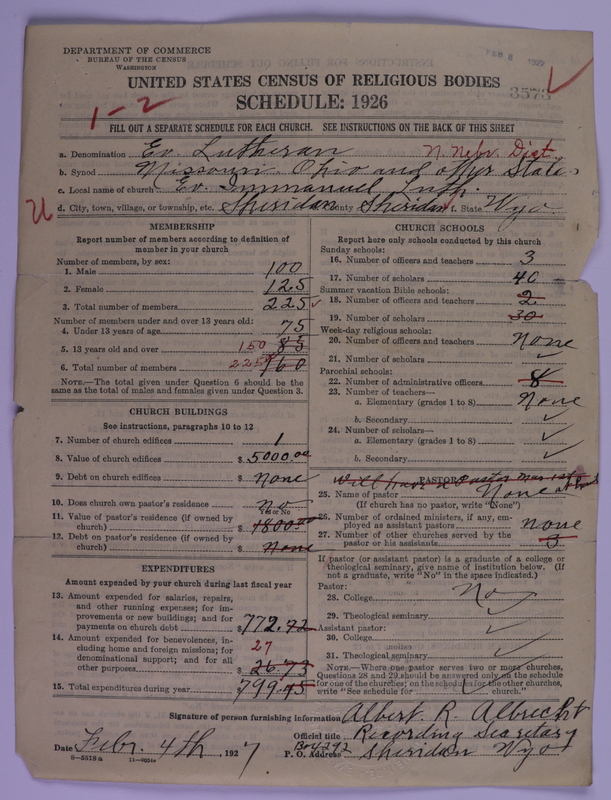 DEPARTMENT OF COMMERCE
BUREAU OF THE CENSUS
WASHINGTON
UNITED STATES CENSUS OF RELIGIOUS BODIES
SCHEDULE: 1926
3573
1-2
FILL OUT A SEPARATE SCHEDULE FOR EACH CHURCH. SEE INSTRUCTIONS ON THE BACK OF THIS SHEET
a. Denomination Ev. Lutheran N. Nebr. Dist.
b. Synod Missouri Ohio and other States
c. Local name of church Ev. Immanuel Luth.
d. City, town, village, or township, etc. Sheridan County Sheridan f. State Wyo.
MEMBERSHIP
Report number of members according to definition of member in your church
Number of members, by sex:
1. Male 100
2. Female 125
3. Total number of members 225
Number of members under and over 13 years old:
4. Under 13 years of age 75
5. 13 years old and over 150 85
6. Total number of members 225 160
NOTE.—The total given under Question 6 should be the same as the total of males and females given under Question 3.
CHURCH BUILDINGS
See instructions, paragraphs 10 to 12
7. Number of church edifices 1
8. Value of church edifices $ 5000.00
9. Debt on church edifices $ None
10. Does church own pastor's residence No
Yes or No
11. Value of pastor's residence (if owned by church) $ 1800.00
12. Debt on pastor's residence (if owned by church) $ None
EXPENDITURES
Amount expended by your church during last fiscal year
13. Amount expended for salaries, repairs, and other running expenses; for improvements or new buildings; and for payments on church debt $ 772.72
14. Amount expended for benevolences, including home and foreign missions; for denominational support; and for all other purposes 27 $ 26.73
15. Total expenditures during year $ 799.45
CHURCH SCHOOLS
Report here only schools conducted by this church
Sunday schools:
16. Number of officers and teachers 3
17. Number of scholars 40
Summer vacation Bible schools:
18. Number of officers and teachers 2
19. Number of scholars 30
Week-day religious schools:
20. Number of officers and teachers None
21. Number of scholars
Parochial schools:
22. Number of administrative officers 8
23. Number of teachers—
a. Elementary (grades 1 to 8) None
b. Secondary
24. Number of scholars—
a. Elementary (grades 1 to 8)
b. Secondary
PASTOR
Will have a Pastor Mar 1st
25. Name of pastor None
(If church has no pastor, write "None")
26. Number of ordained ministers, if any, employed as assistant pastors none
27. Number of other churches served by the pastor or his assistants 3
If pastor (or assistant pastor) is a graduate of a college or theological seminary, give name of institution below. (If not a graduate, write "No" in the space indicated.)
Pastor:
28. College No
29. Theological seminary
Assistant pastor:
30. College
31. Theological seminary
NOTE.—Where one pastor serves two or more churches, Questions 28 and 29 should be answered only on the schedule for one of the churches; on the schedules for the other churches, write "See schedule for church."
Signature of person furnishing information Albert R. Albrecht
Official title Recording Secretary
Date Febr. 4th, 1927 P. O. Address Box 292 Sheridan Wyo